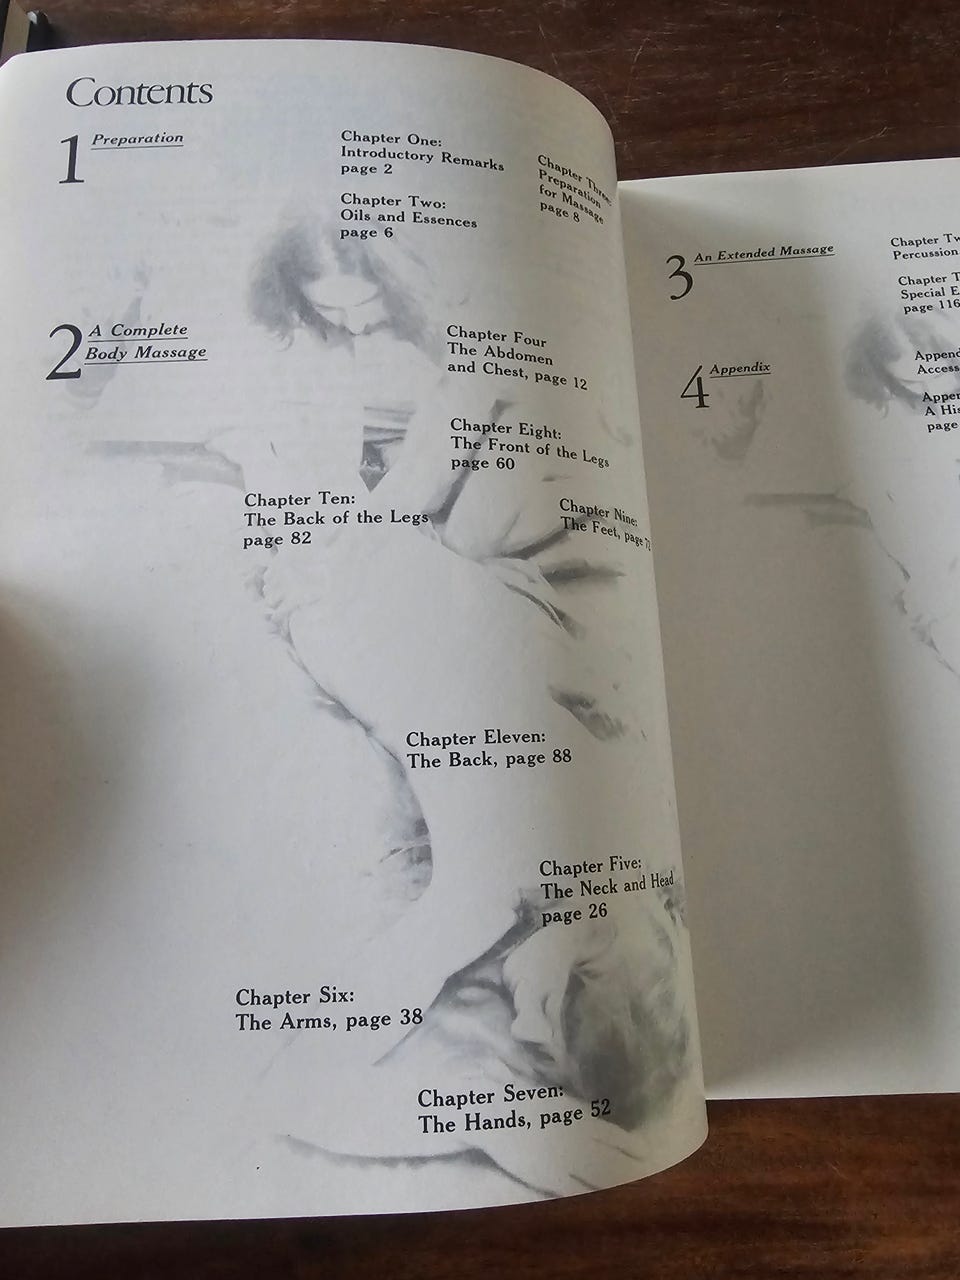 Contents
1 Preparation
Chapter One:
Introductory Remarks
page 2
Chapter Two:
Oils and Essences
page 6
Chapter Three:
Preparation
for Massage
page 8
2 A Complete
Body Massage
Chapter Four
The Abdomen
and Chest, page 12
Chapter Eight:
The Front of the Legs
page 60
Chapter Ten:
The Back of the Legs
page 82
Chapter Nine:
The Feet, page
Chapter Eleven:
The Back, page 88
Chapter Five:
The Neck and Head
page 26
Chapter Six:
The Arms, page 38
Chapter Seven:
The Hands, page 52
3 An Extended Massage
Chapter Tw
Percussion
Chapter T
Special E
page 116
4 Appendix
Append
Access
Appen
A His
page